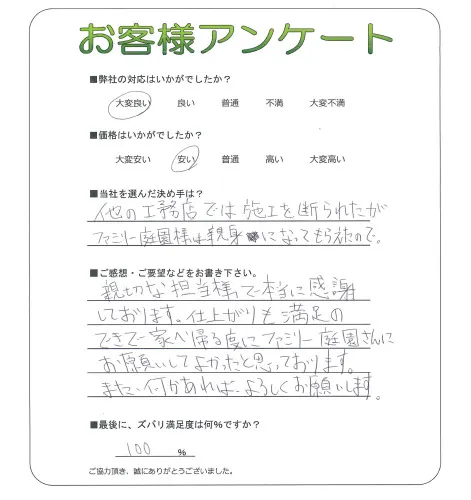 お客様アンケート
■弊社の対応はいかがでしたか？
大変良い 良い 普通 不満 大変不満
■価格はいかがでしたか？
大変安い 安い 普通 高い 大変高い
■当社を選んだ決め手は？
他の工務店では施工を断られたが
ファミリー庭園様は親身になってもらえたので。
■ご感想・ご要望などをお書き下さい。
親切な担当様で本当に感謝
しております。仕上がりも満足の
できで一家へ帰る度にファミリー庭園さんに
お願いしてよかったと思っております。
また、何かあれば、よろしくお願いします。
■最後に、ズバリ満足度は何％ですか？
100 ％
ご協力頂き、誠にありがとうございました。